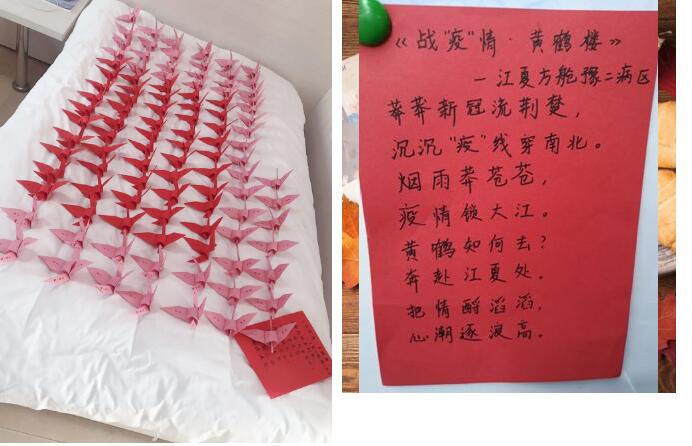 《战"疫"情·黄鹤楼》
—江夏方舱豫二病区
莽莽新冠流荆楚，
沉沉"疫"线穿南北。
烟雨莽苍苍，
疫情锁大江。
黄鹤如何去？
奔赴江夏处。
把情酹滔滔，
心潮逐浪高。